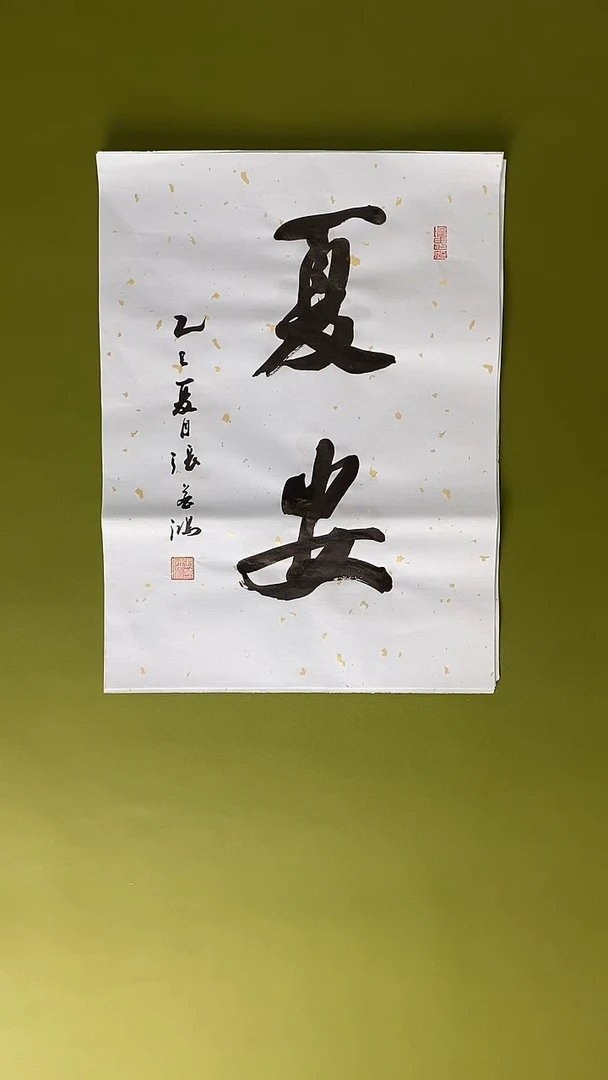 夏安
乙巳夏月張善鴻